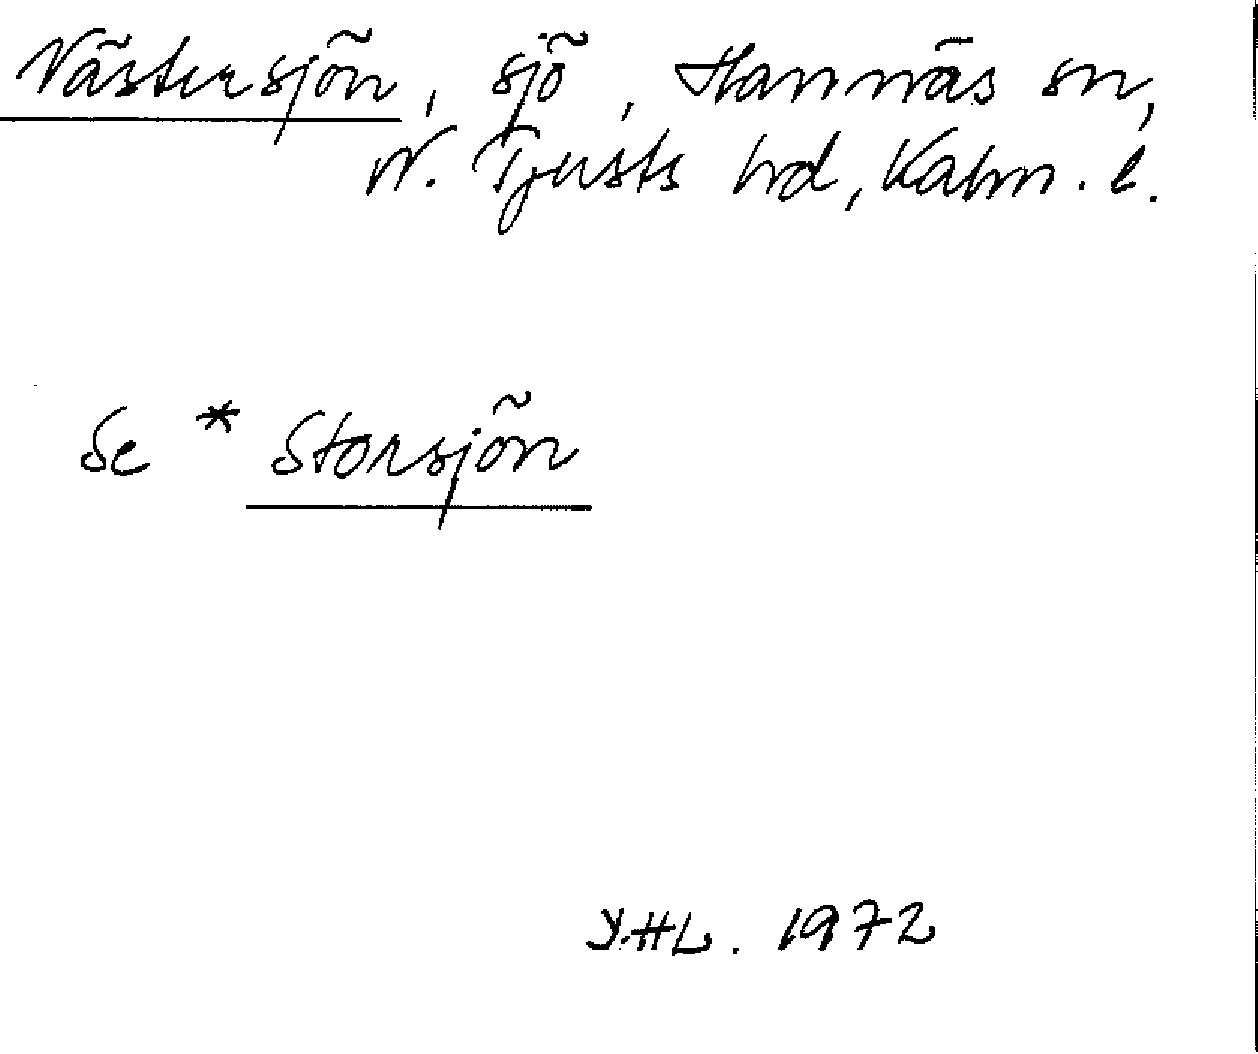 Västersjön, sjö, Hannäs sn,
N. Tjusts hd, Kalm. l.
Se * Storsjön
Y.HL. 1972